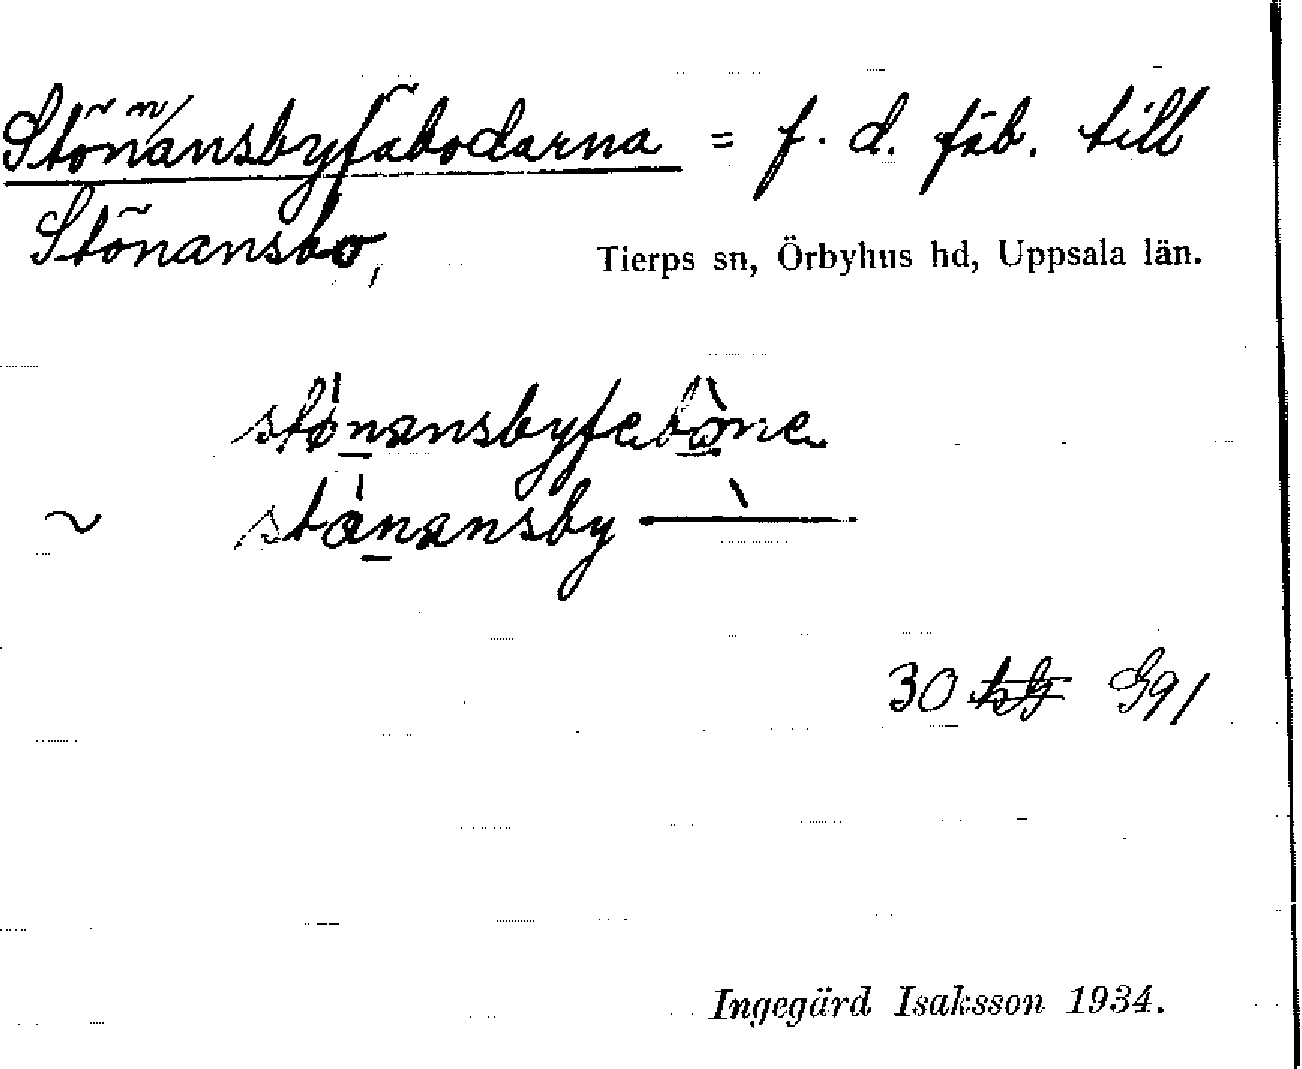 Stönansbyfäbodarna = f. d. fäb. till
Stönansbo,
Tierps sn, Örbyhus hd, Uppsala län.
stönansbyfebone
~ stånansby —
30 G91
Ingegärd Isaksson 1934.